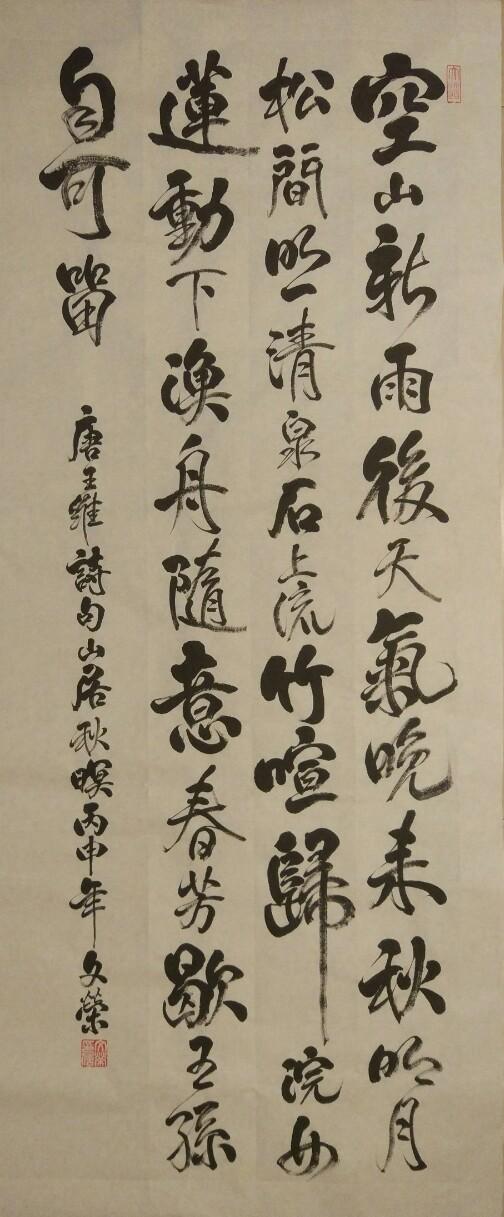 空山新雨後天氣晚来秋明月
松間照清泉石上流竹喧歸浣女
蓮動下渔舟隨意春芳歇王孫
自可留
唐王維詩句山居秋暝丙申年文榮